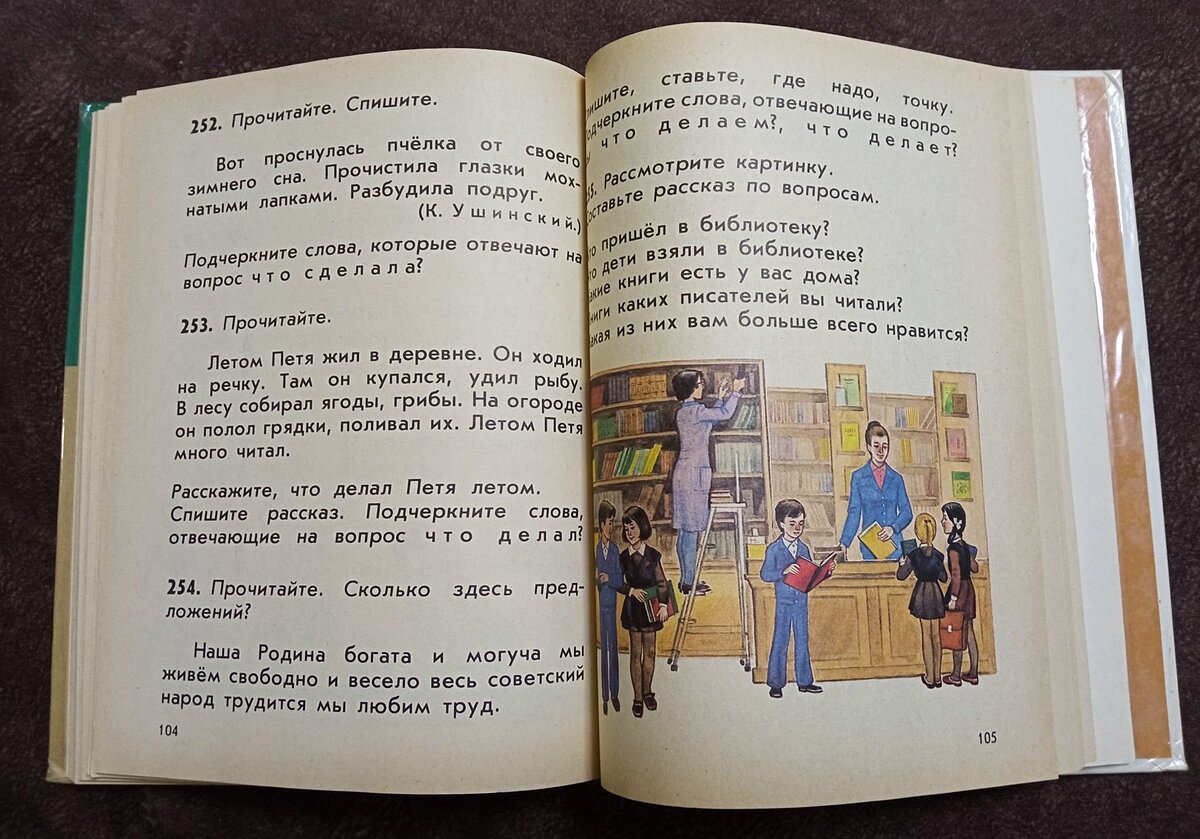 252. Прочитайте. Спишите.
Вот проснулась пчёлка от своего
зимнего сна. Прочистила глазки мох-
натыми лапками. Разбудила подруг.
(К. Ушинский.)
Подчеркните слова, которые отвечают на
вопрос что сделала?
253. Прочитайте.
Летом Петя жил в деревне. Он ходил
на речку. Там он купался, удил рыбу.
В лесу собирал ягоды, грибы. На огороде
он полол грядки, поливал их. Летом Петя
много читал.
Расскажите, что делал Петя летом.
Спишите рассказ. Подчеркните слова,
отвечающие на вопрос что делал?
254. Прочитайте. Сколько здесь пред-
ложений?
Наша Родина богата и могуча мы
живём свободно и весело весь советский
народ трудится мы любим труд.
104
ставьте, где надо, точку.
слова, отвечающие на вопро-
что делаем?, что делает?
Рассмотрите картинку.
рассказ по вопросам.
пришёл в библиотеку?
дети взяли в библиотеке?
книги есть у вас дома?
каких писателей вы читали?
из них вам больше всего нравится?
105